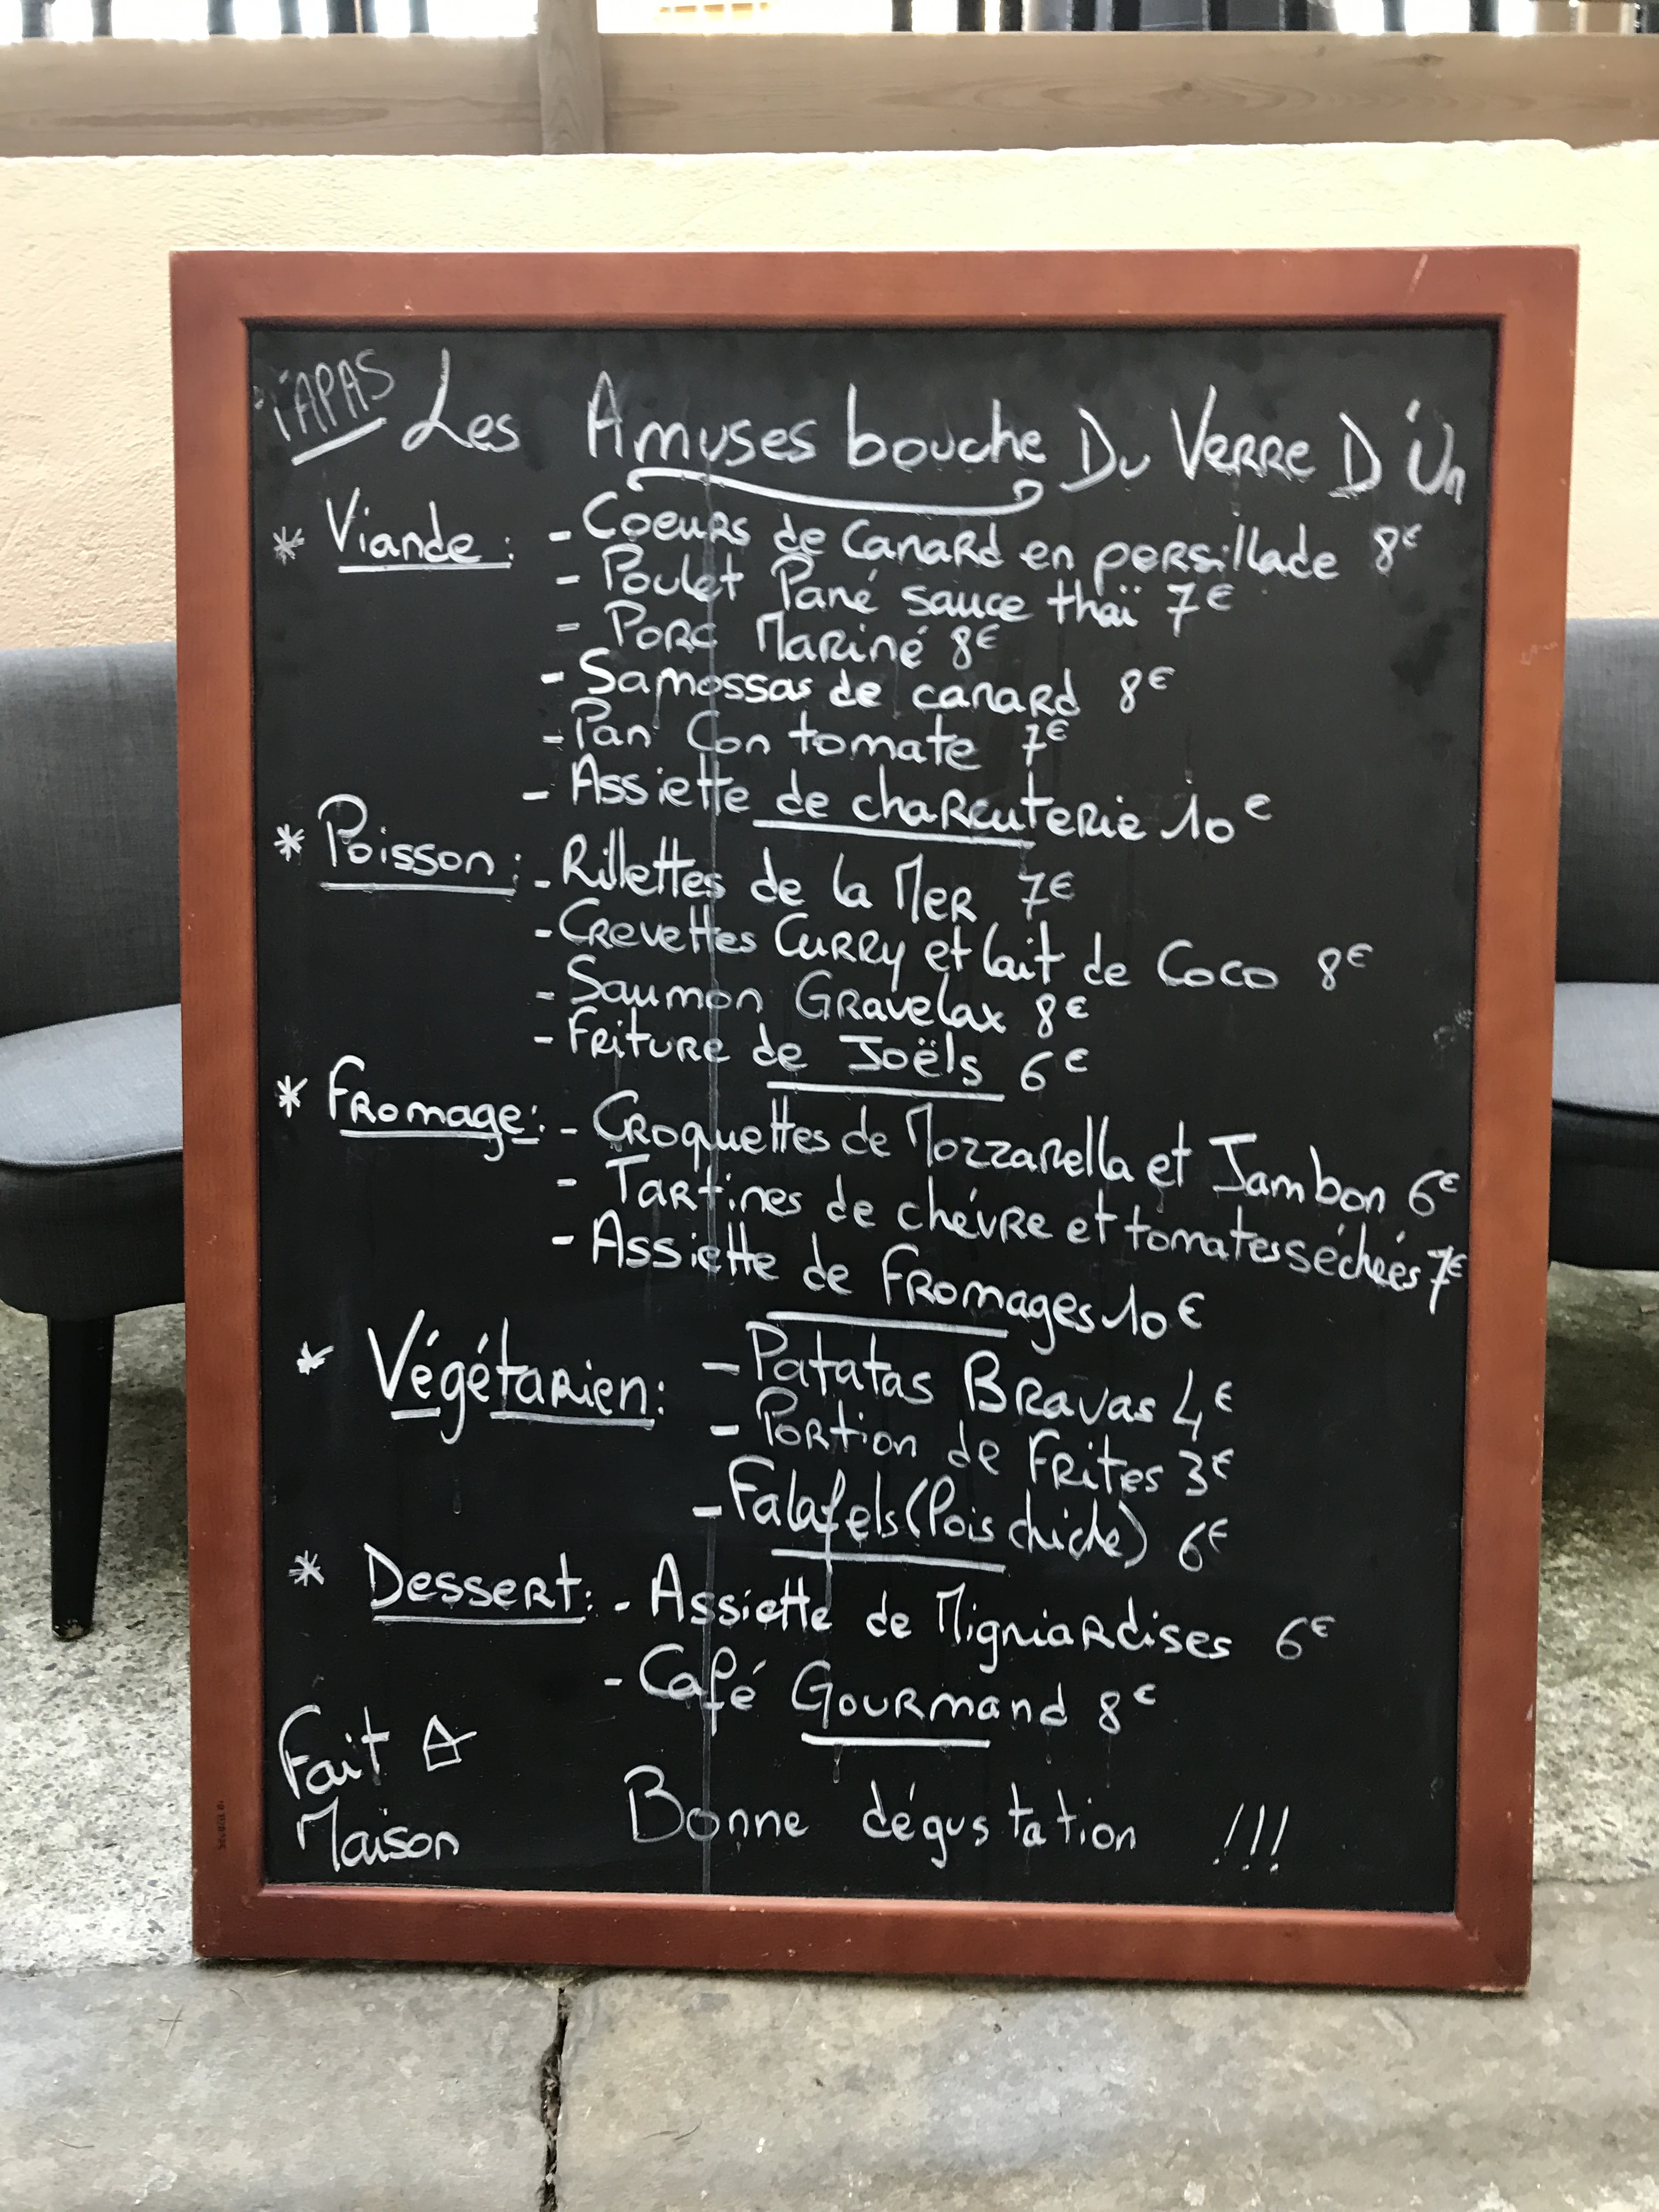 TAPAS Les Amuses bouche Du Verre D'Un
* Viande : - Coeurs de Canard en persillade 8€
- Poulet Pané sauce thaï 7€
- Porc Mariné 8€
- Samossas de canard 8€
- Pan Con tomate 7€
- Assiette de charcuterie 10€
* Poisson : - Rillettes de la Mer 7€
- Crevettes Curry et lait de Coco 8€
- Saumon Gravelax 8€
- Friture de Joëls 6€
* Fromage : - Croquettes de Mozzarella et Jambon 6€
- Tartines de chévre et tomates séchées 7€
- Assiette de Fromages 10€
* Végétarien : - Patatas Bravas 4€
- Portion de Frites 3€
- Falafels (Pois chiche) 6€
* Dessert : - Assiette de Migniardises 6€
- Café Gourmand 8€
Fait
Maison
Bonne dégustation !!!